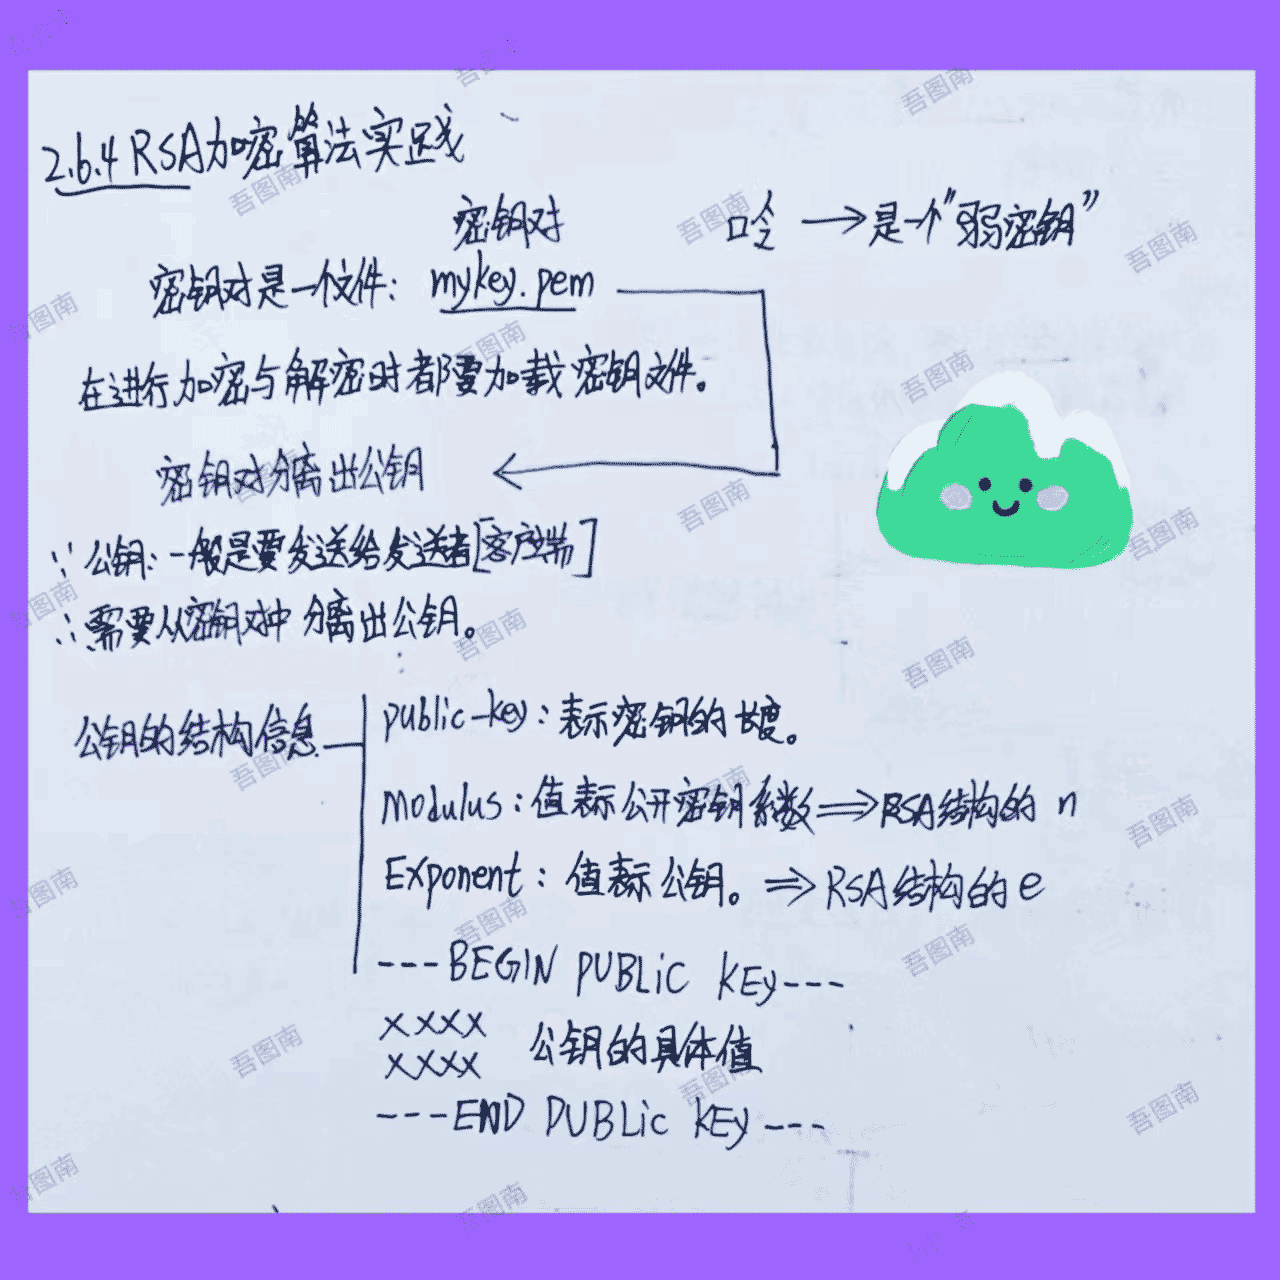 2.6.4 RSA加密算法实践
密钥对 口令 → 是一个"弱密钥"
密钥对是一个文件: mykey.pem
在进行加密与解密时都要加载密钥文件。
密钥对分离出公钥
∵ 公钥: 一般是要发送给发送者[客户端]
∴ 需要从密钥对中分离出公钥。
公钥的结构信息
public-key: 表示密钥的长度。
modulus: 值表示公开密钥系数 ⇒ RSA结构的 n
Exponent: 值表示公钥。 ⇒ RSA结构的 e
---BEGIN PUBLiC KEy---
××××
×××× 公钥的具体值
---END PUBLiC KEy---
吾图南